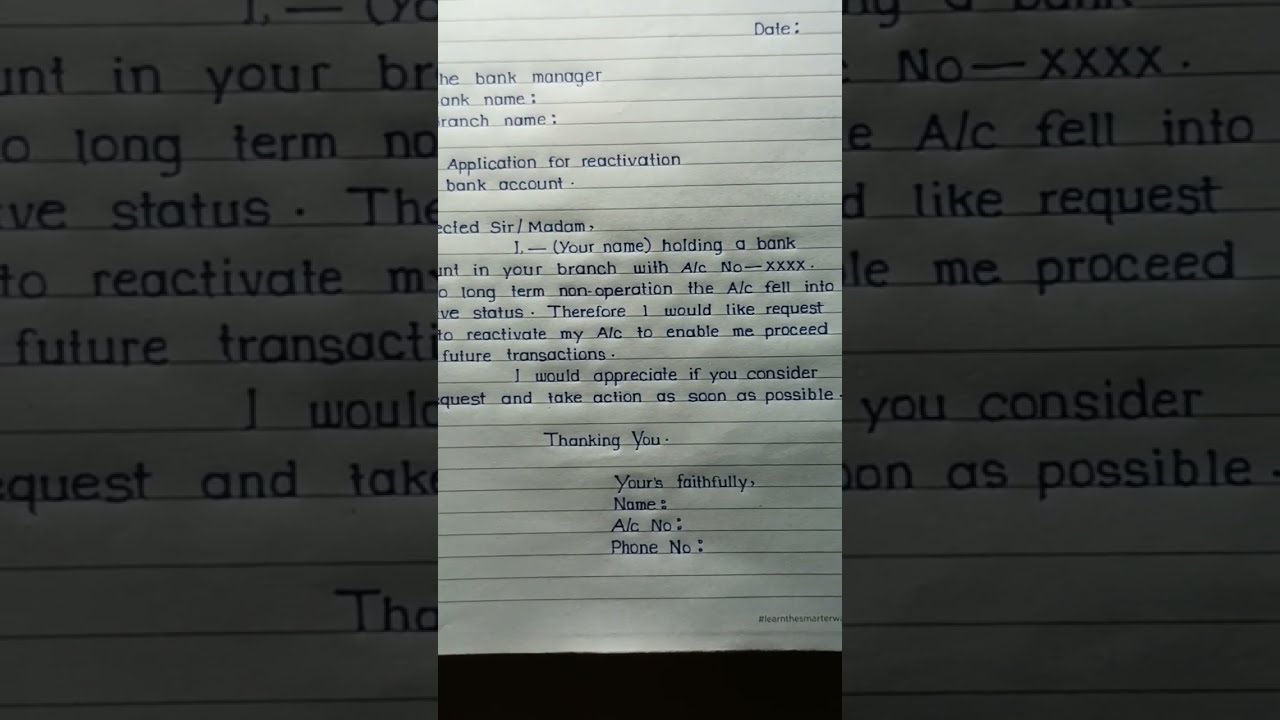 Date:
he bank manager
ank name:
ranch name:
Application for reactivation
bank account.
ected Sir/Madam,
I, — (Your name) holding a bank
unt in your branch with A/c No—XXXX.
o long term non-operation the A/c fell into
ve status. Therefore I would like request
to reactivate my A/c to enable me proceed
future transactions.
I would appreciate if you consider
equest and take action as soon as possible.
Thanking You.
Your's faithfully,
Name:
A/c No:
Phone No:
#learnthesmarterw